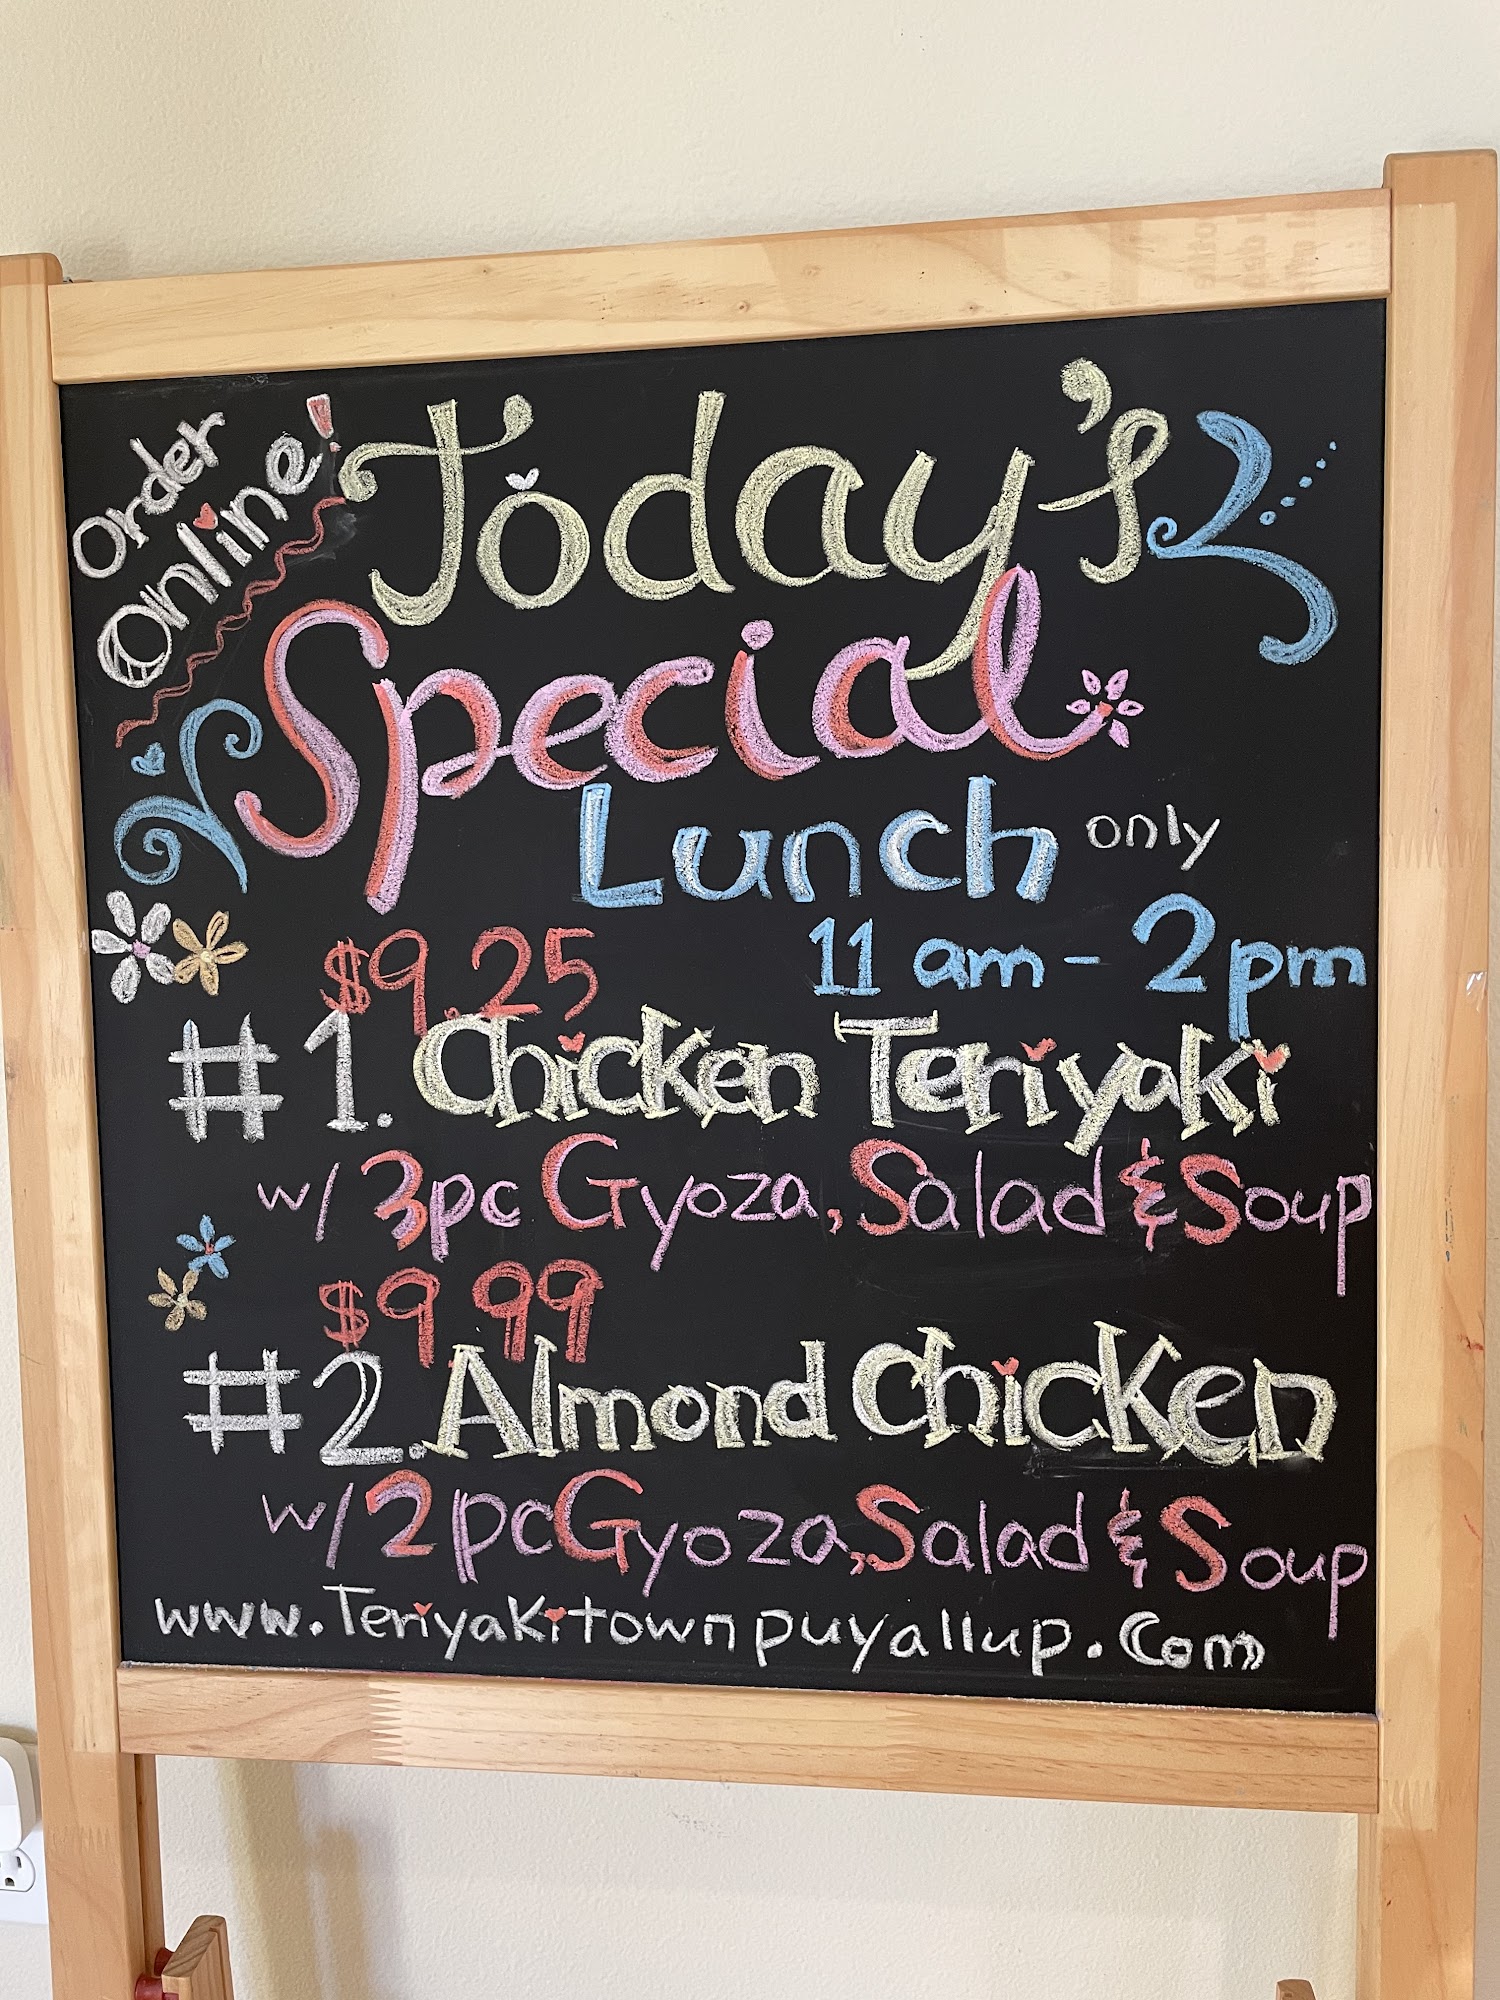 Order
Online!
Today's
Special
Lunch only
$9.25 11 am - 2pm
#1. Chicken Teriyaki
w/ 3pc Gyoza, Salad & Soup
$9 99
#2. Almond Chicken
w/ 2pc Gyoza, Salad & Soup
www.Teriyakitownpuyallup.Com